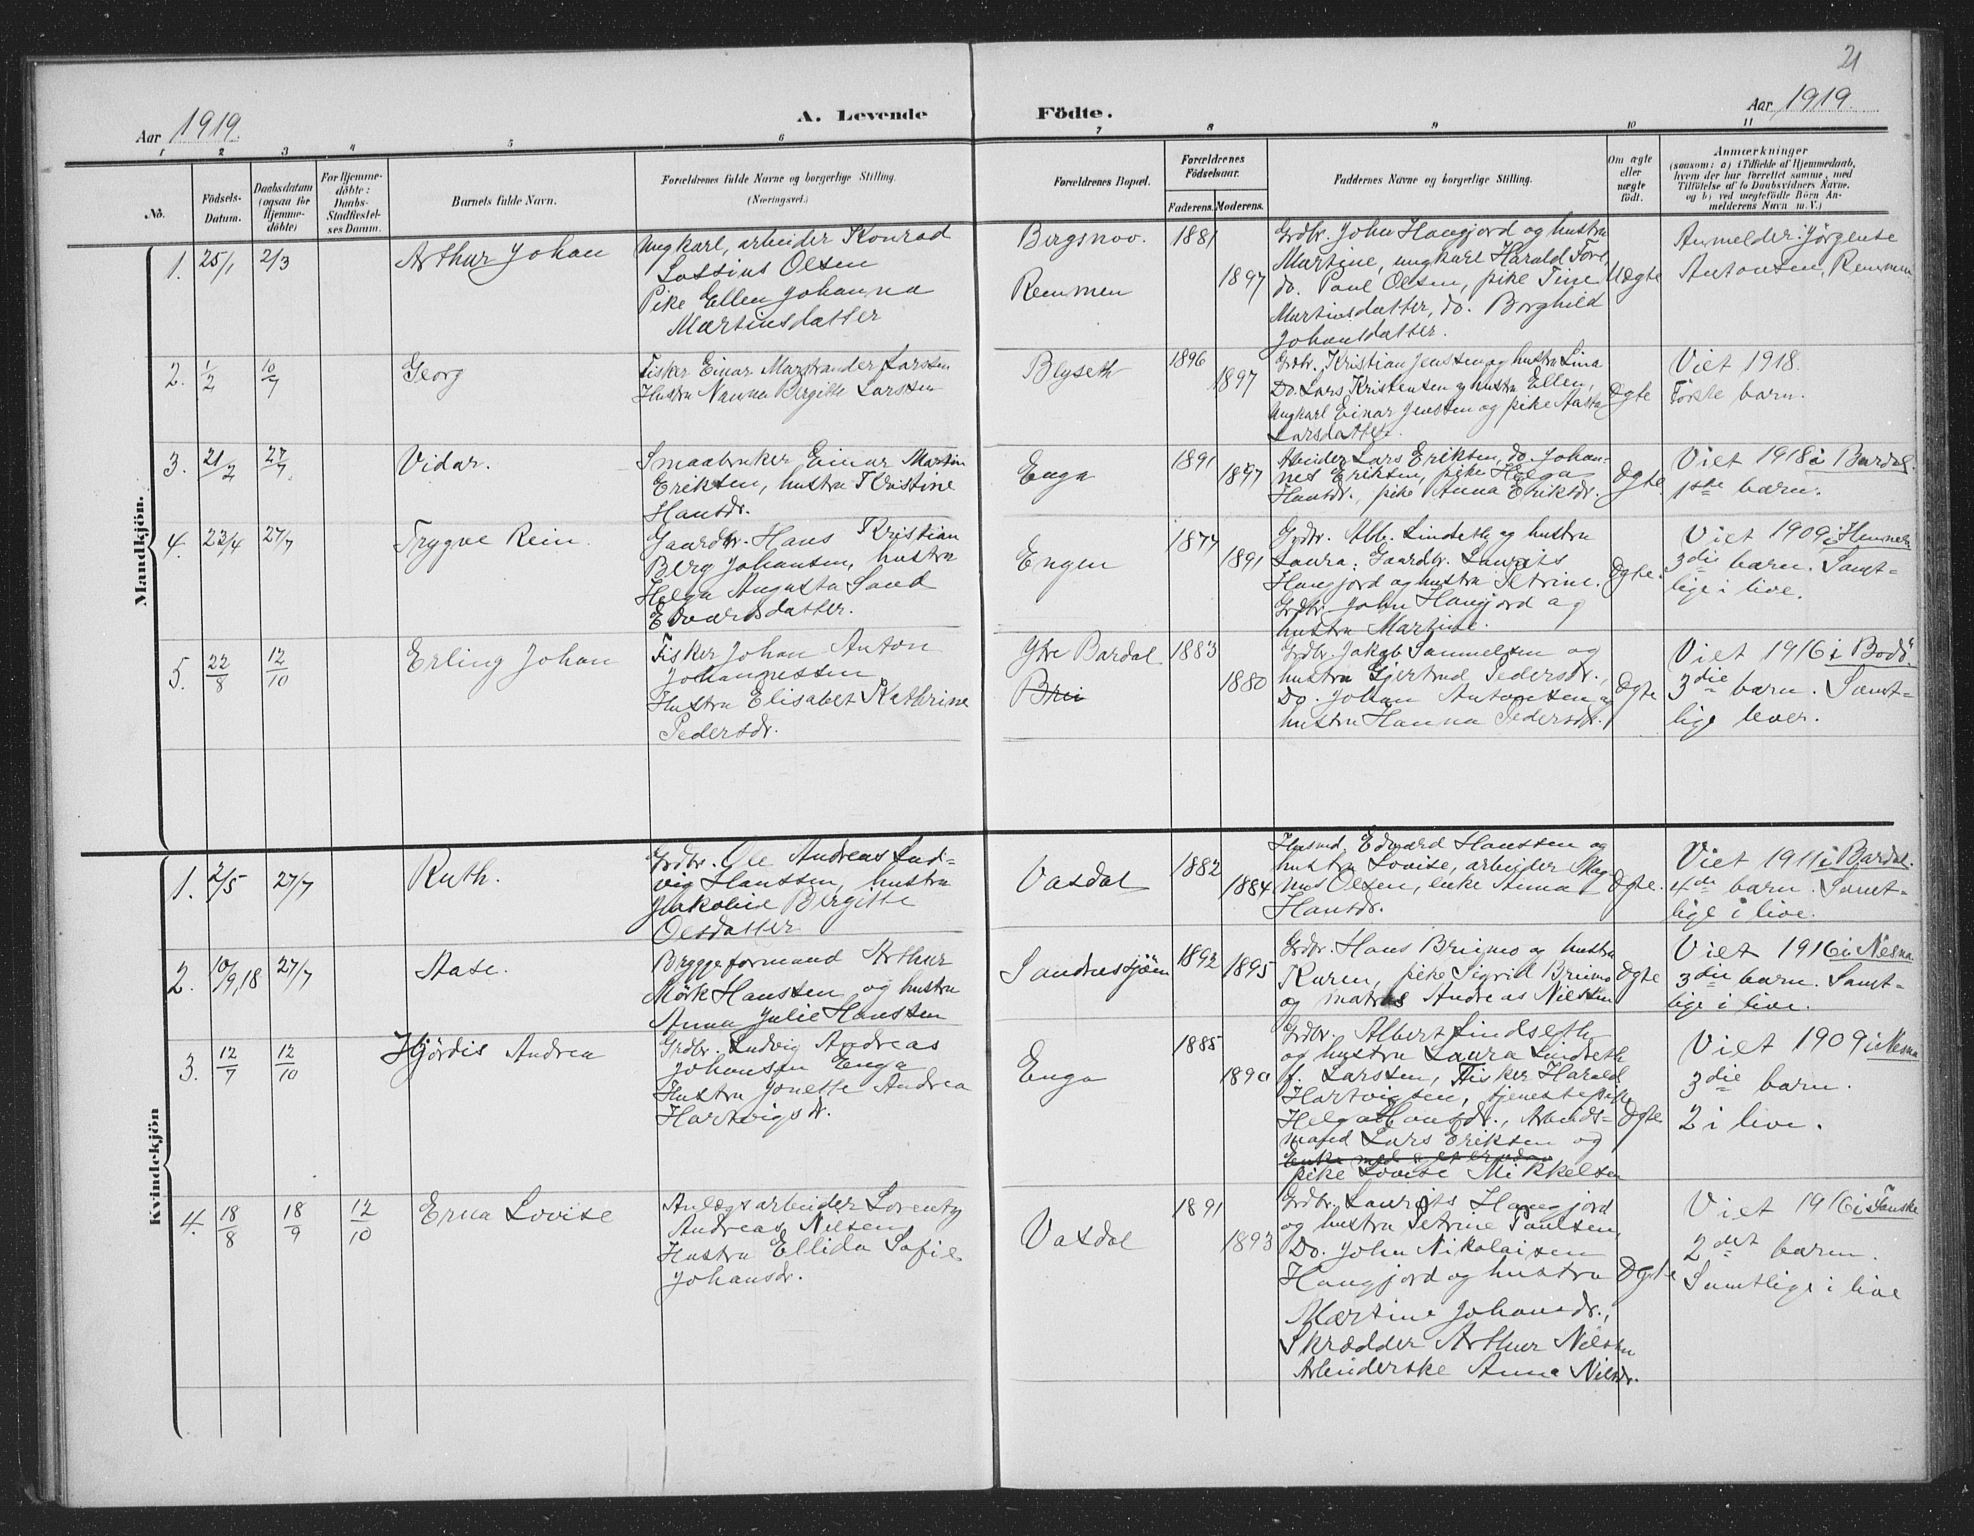 21
Aar 1919.
A. Levende
Födte.
Aar 1919.
1 2 3 4 5 6 7 8 9 10 11
No.
Födsels-
Datum.
Daabsdatum
(ogsaa for
Hjemme-
döbte)
For Hjemme-
döbte:
Daabs-
Stadfæstel-
ses Datum.
Barnets fulde Navn.
Forældrenes fulde Navne og borgerlige Stilling.
(Næringsvei.)
Forældrenes Bopæl.
Forældrenes
Födselsaar.
Faderens. Moderens.
Faddernes Navne og borgerlige Stilling.
Om ægte
eller
uægte
födt.
Anmærkninger
(saasom: a) i Tilfælde af Hjemmedaab,
hvem der har forrettet samme, med
Tilföielse af to Daabsvidners Navne,
og b) ved uægtefödte Börn An-
melderens Navn m. V.)
Mandkjön.
1. 25/1 2/3 Arthur Johan
Ungkarl, arbeider Konrad
Lossius Olsen
Pike Ellen Johanna
Martinsdatter
Bergsnov.
Remmen
1881
1897
Grdbr. John Haugjord og hustru
Martine, ungkarl Harald Fore
do. Paul Olsen, pike Tine
Martinsdatter, do. Borghild
Johansdatter.
Uegte
Anmelder: Jörgense
Antonsen, Remmen
2. 1/2 10/7 Georg
Fisker Einar Marstrander Larssen
Hustru Nanna Bergitte Larssen
Blyseth
1896
1897
Grdbr. Kristian Jenssen og hustru Lina
Do. Lars Kristensen og hustru Ellen,
Ungkarl Einar Jenssen og pike Aasta
Larsdatter.
Ogte
Viet 1918.
Förste barn.
3. 21/2 27/7. Vidar.
Smaabruker Einar Martin
Eriksen, hustru Kristine
Hansdr.
Enga
1891
1897
Arbeider Lars Eriksen, do. Johan-
nes Eriksen, pike Helga
Hansdr., pike Anna Eriksdr.
Ogte.
Viet 1918 i Bardal.
1ste barn.
4. 23/4 27/7 Trygve Rein.
Gaardbr. Hans Kristian
Berg Johansen, hustru
Helga Augusta Sand
Edvardsdatter.
Engen
1877
1891
Grdbr. Alb. Lindseth og hustru
Laura, Gaardbr. Laurits
Haugjord og hustru Petrine.
Grdbr. John Haugjord og
hustru Martine.
Ogte.
Viet 1909 i Hemnes
3die barn. Samt-
lige i live.
5. 22/8 12/10 Erling Johan
Fisker Johan Anton
Johannessen
Hustru Elisabet Kathrine
Pedersdr.
Ytre Bardal
1883
1880
Grdbr. Jakob Sammelsen og
hustru Gjertrud Pedersdr.,
Do. Johan Antonsen og
hustru Hanna Pedersdr.
Ogte
Viet 1916 i Bodö.
3die barn. Samt-
lige lever.
Kvindekjön
1. 2/5 27/7 Ruth.
Grdbr. Ole Andreas Lud-
vig Hanssen, hustru
Jakobine Bergitte
Olsdatter
Vasdal
1882
1884
Husmd. Edvard Hanssen og
hustru Lovise, arbeider Mag-
nus Olsen, enke Anna
Hansdr.
Ogte.
Viet 1911 i Bardal.
4de barn. Samt-
lige i live.
2. 10/9,18 27/7 Aase.
Bryggeformand Arthur
Mörk Hanssen og hustru
Anna Julie Hanssen
Sandnessjöen
1892
1895
Grdbr. Hans Brugmo og hustru
Karen, pike Sigrid Brugmo
og matros Andreas Nilssen
Ogte
Viet 1916 i Nesna
3die barn. Samt-
lige i live.
3. 12/7 12/10 Hjördis Andrea
Grdbr. Ludvig Andreas
Johansen Enga
Hustru Jonette Andrea
Hartvigsdr.
Enga
1885
1890
Grdbr. Albert Lindseth
og hustru Laura Lindseth
f. Larssen, Fisker Harald
Hartvigsen, tjenestepike
Helga Hansdr., Arbeids-
mand Lars Eriksen og
pike Lovise Mikkelsen
Ogte
Viet 1909 i Nesna
3die barn.
2 i live.
4. 18/8 18/9 12/10 Erna Lovise
Anlægsarbeider Lorentz
Andreas Nilsen
Hustru Ellida Sofie
Johansdr.
Vasdal
1891
1893
Grdbr. Laurits Haugjord
og hustru Petrine Paulsen,
Do. John Nikolaisen
Haugjord og hustru
Martine Johansdr.,
Skrædder Arthur Nilsen
Arbeiderske Anna Nilsdr.
Ogte
Viet 1916 i Fauske
2det barn.
Samtlige i live